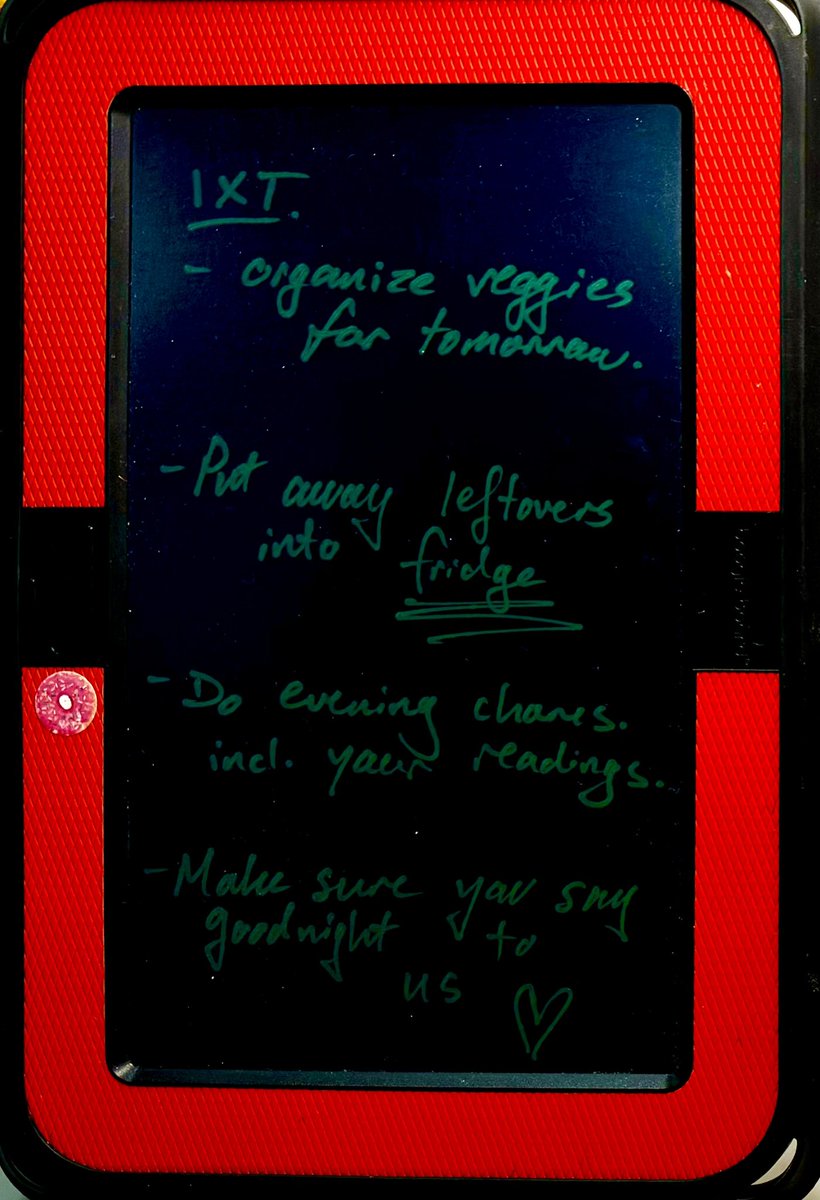 IXT.
- organize veggies
for tomorrow.
- Put away leftovers
into fridge
- Do evening chores.
incl. your readings.
- Make sure you say
goodnight to
us ♡